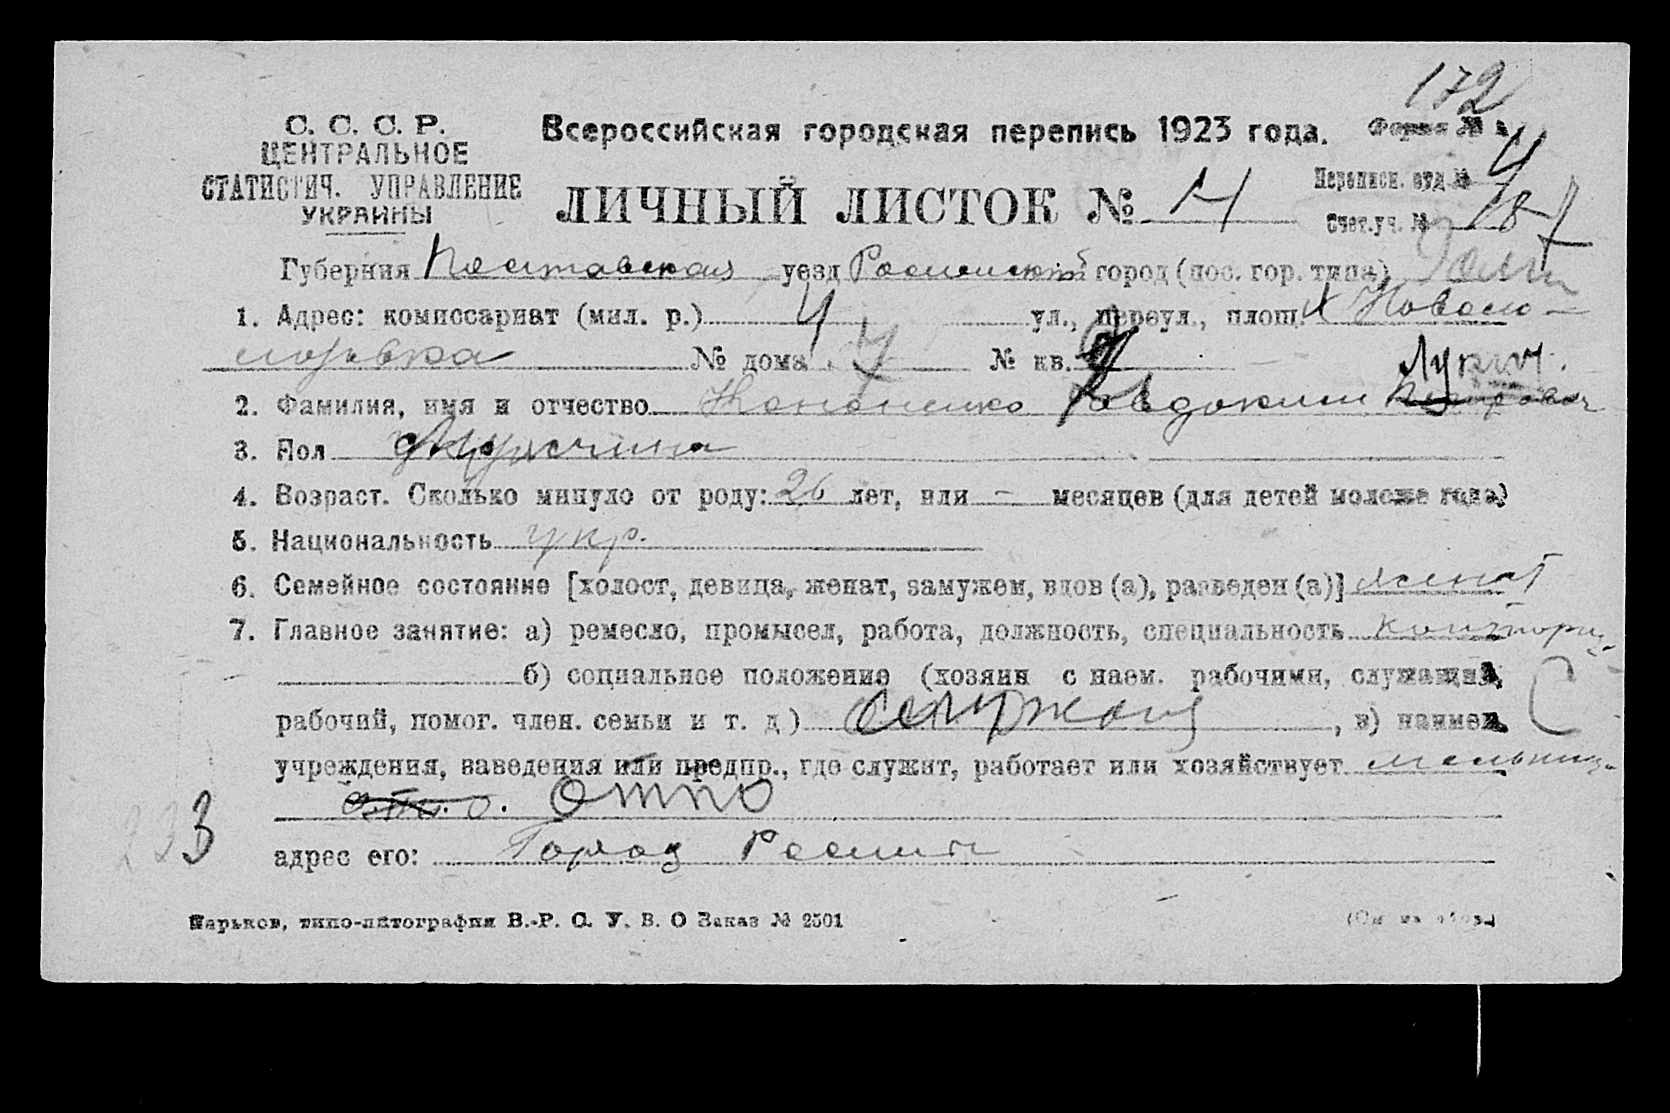 172
С. С. С. Р.
ЦЕНТРАЛЬНОЕ
СТАТИСТИЧ. УПРАВЛЕНИЕ
УКРАИНЫ
Всероссийская городская перепись 1923 года.
Форма №
ЛИЧНЫЙ ЛИСТОК № 14
Переписн. отд №
Счет.уч. № 187
Губерния Полтавская уезд Роменский город (пос. гор. типа)
1. Адрес: комиссариат (мил. р.) 4 ул., переул., площ.
№ дома 7 № кв.
2. Фамилия, имя и отчество Кононенко Евдоким Лукич.
3. Пол Мужчина
4. Возраст. Сколько минуло от роду: 26 лет, или – месяцев (для детей моложе года)
5. Национальность укр.
6. Семейное состояние [холост, девица, женат, замужем, вдов (а), разведен (а)] женат
7. Главное занятие: а) ремесло, промысел, работа, должность, специальность
б) социальное положение (хозяин с наем. рабочими, служащий,
рабочий, помог. член. семьи и т. д) , в) наимен.
учреждения, заведения или предпр., где служит, работает или хозяйствует
233
адрес его: Город Ромны
Харьков, типо-литография В.-Р. С. У. В. О Заказ № 2501